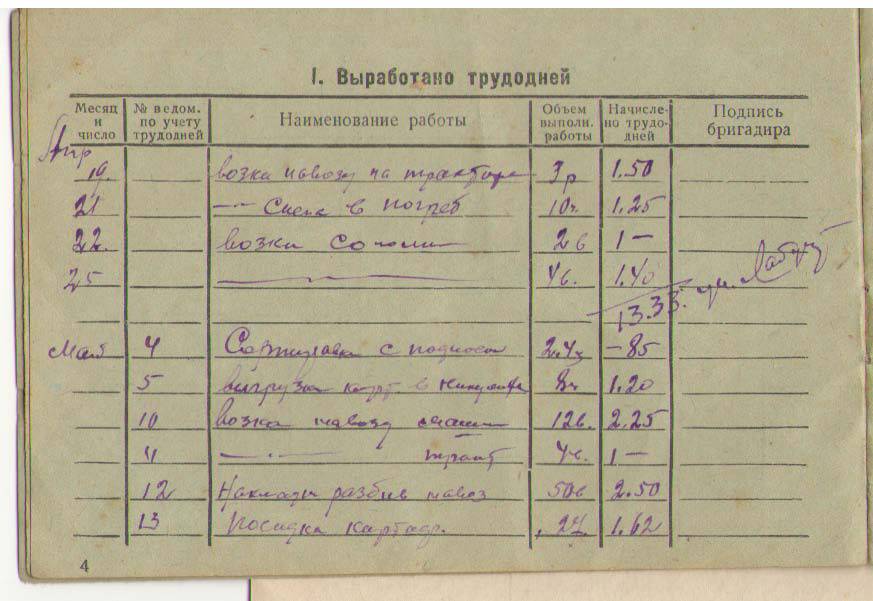 I. Выработано трудодней
Месяц и число № ведом. по учету трудодней Наименование работы Объем выполн. работы Начислено трудодней Подпись бригадира
Апр
19. возка навозу на тракторе 3р 1.50
21 —"— Снега в погреб 10ч. 1.25
22. возка Соломы 2в 1—
25 4в. 1.40
13.33.
Май 4 с 2.4ц -85
5 выгрузка карт в 8ч 1.20
10 возка навозу 12в. 2.25
11 —"— 4в. 1—
12 разбив навоз 50в 2.50
13 Посадка картофр. 1.62
4